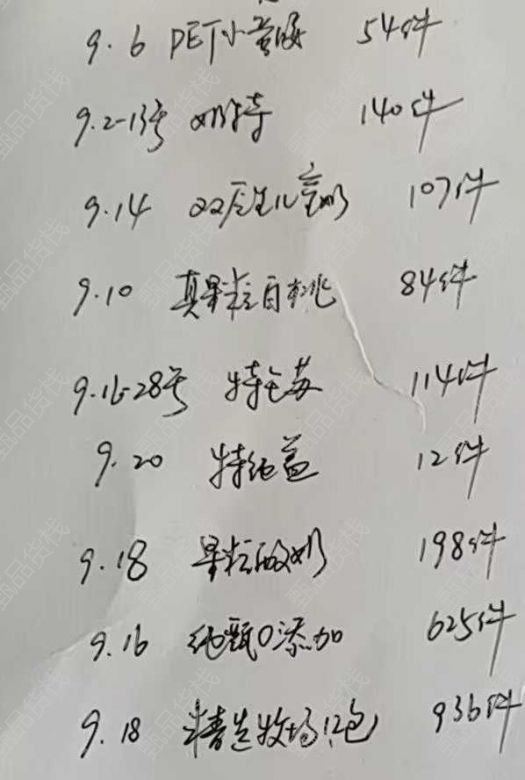 9.6 PET小蛮腰 54件
9.2-13号 奶特 140件
9.14 QQ星儿童奶 107件
9.10 真果粒白桃 84件
9.16-28号 特仑苏 114件
9.20 特纯益 12件
9.18 果粒酸奶 198件
9.16 纯甄0添加 625件
9.18 精选牧场12包 936件
臻品货栈